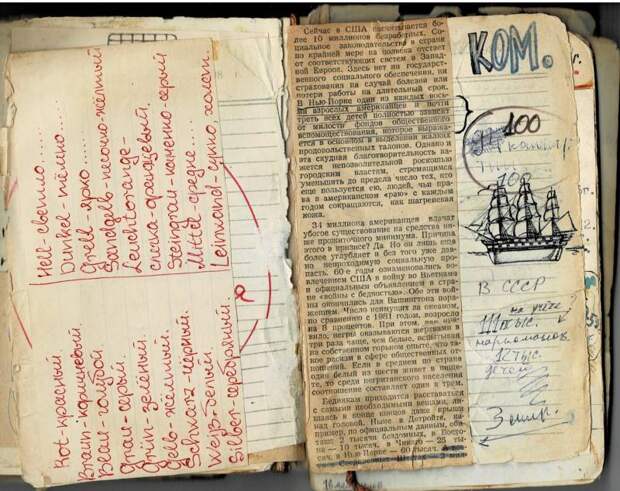 Rot-красный.
Braun-коричневый.
Blau-голубой
Grau-серый.
Grün-зелёный.
Gelb-жёлтый.
Schwarz-чёрный.
Weiß-белый.
Silber-серебряный.
Hell светло....
Dunkel-тёмно.
Grell ярко.....
Sandgelb-песочно-жёлтый
Leuchtorange-
оранжевый.
Steingrau-каменно-серый
Mittel средне...
Leinwand-
Сейчас в США насчитывается бо-
лее 10 миллионов безработных. Со-
циальное законодательство в стране
по крайней мере на полвека отстает
от соответствующих систем в Запад-
ной Европе. Здесь нет ни государст-
венного социального обеспечения, ни
страхования на случай болезни или
потери работы на длительный срок.
В Нью-Йорке один из каждых вось-
ми взрослых американцев и почти
треть всех детей полностью зависят
от милости фондов общественного
вспомоществования, которое выража-
ется в основном в выделении жалких
продовольственных талонов. Однако и
эта скудная благотворительность ка-
жется непозволительной роскошью
городским властям, стремящимся
уменьшить до предела число тех, кто
еще пользуется ею, людей, чьи пра-
ва в американском «раю» с каждым
годом сокращаются, как шагреневая
кожа.
34 миллиона американцев влачат
убогое существование на средства ни-
же прожиточного минимума. Причина
этого в кризисе? Да. Но он лишь еще
более углубляет и без того уже дав-
но непроходимую социальную про-
пасть. 60-е годы ознаменовались во-
влечением США в войну во Вьетнаме
и официальным объявлением в стра-
не «войны с бедностью». Обе эти вой-
ны окончились для Вашингтона пора-
жением. Число неимущих на океаном,
по сравнению с 1981 годом, возросло
на 8 процентов. При этом, как пра-
вило, негры оказываются жертвами в
три раза чаще, чем белые, испытывая
на собственном горьком опыте, что та-
кое расизм в сфере общественных от-
ношений. Если в среднем по стране
один белый из шести живет в нище-
те, то среди негритянского населения
это соотношение составляет один к трем.
Беднякам приходится расставаться
с самыми необходимыми вещами, ли-
шаясь в конце концов даже крыши
над головой. Ныне в Детройте, на-
пример, по официальным данным, оби-
тают 2 тысячи бездомных, в Босто-
не — 10 тысяч, в Чикаго — 25 ты-
сяч, в Нью-Йорке — 60 тысяч.
КОМ.
100
100
В СССР
на учёте
тыс.
наркоманов
12 тыс.
детей